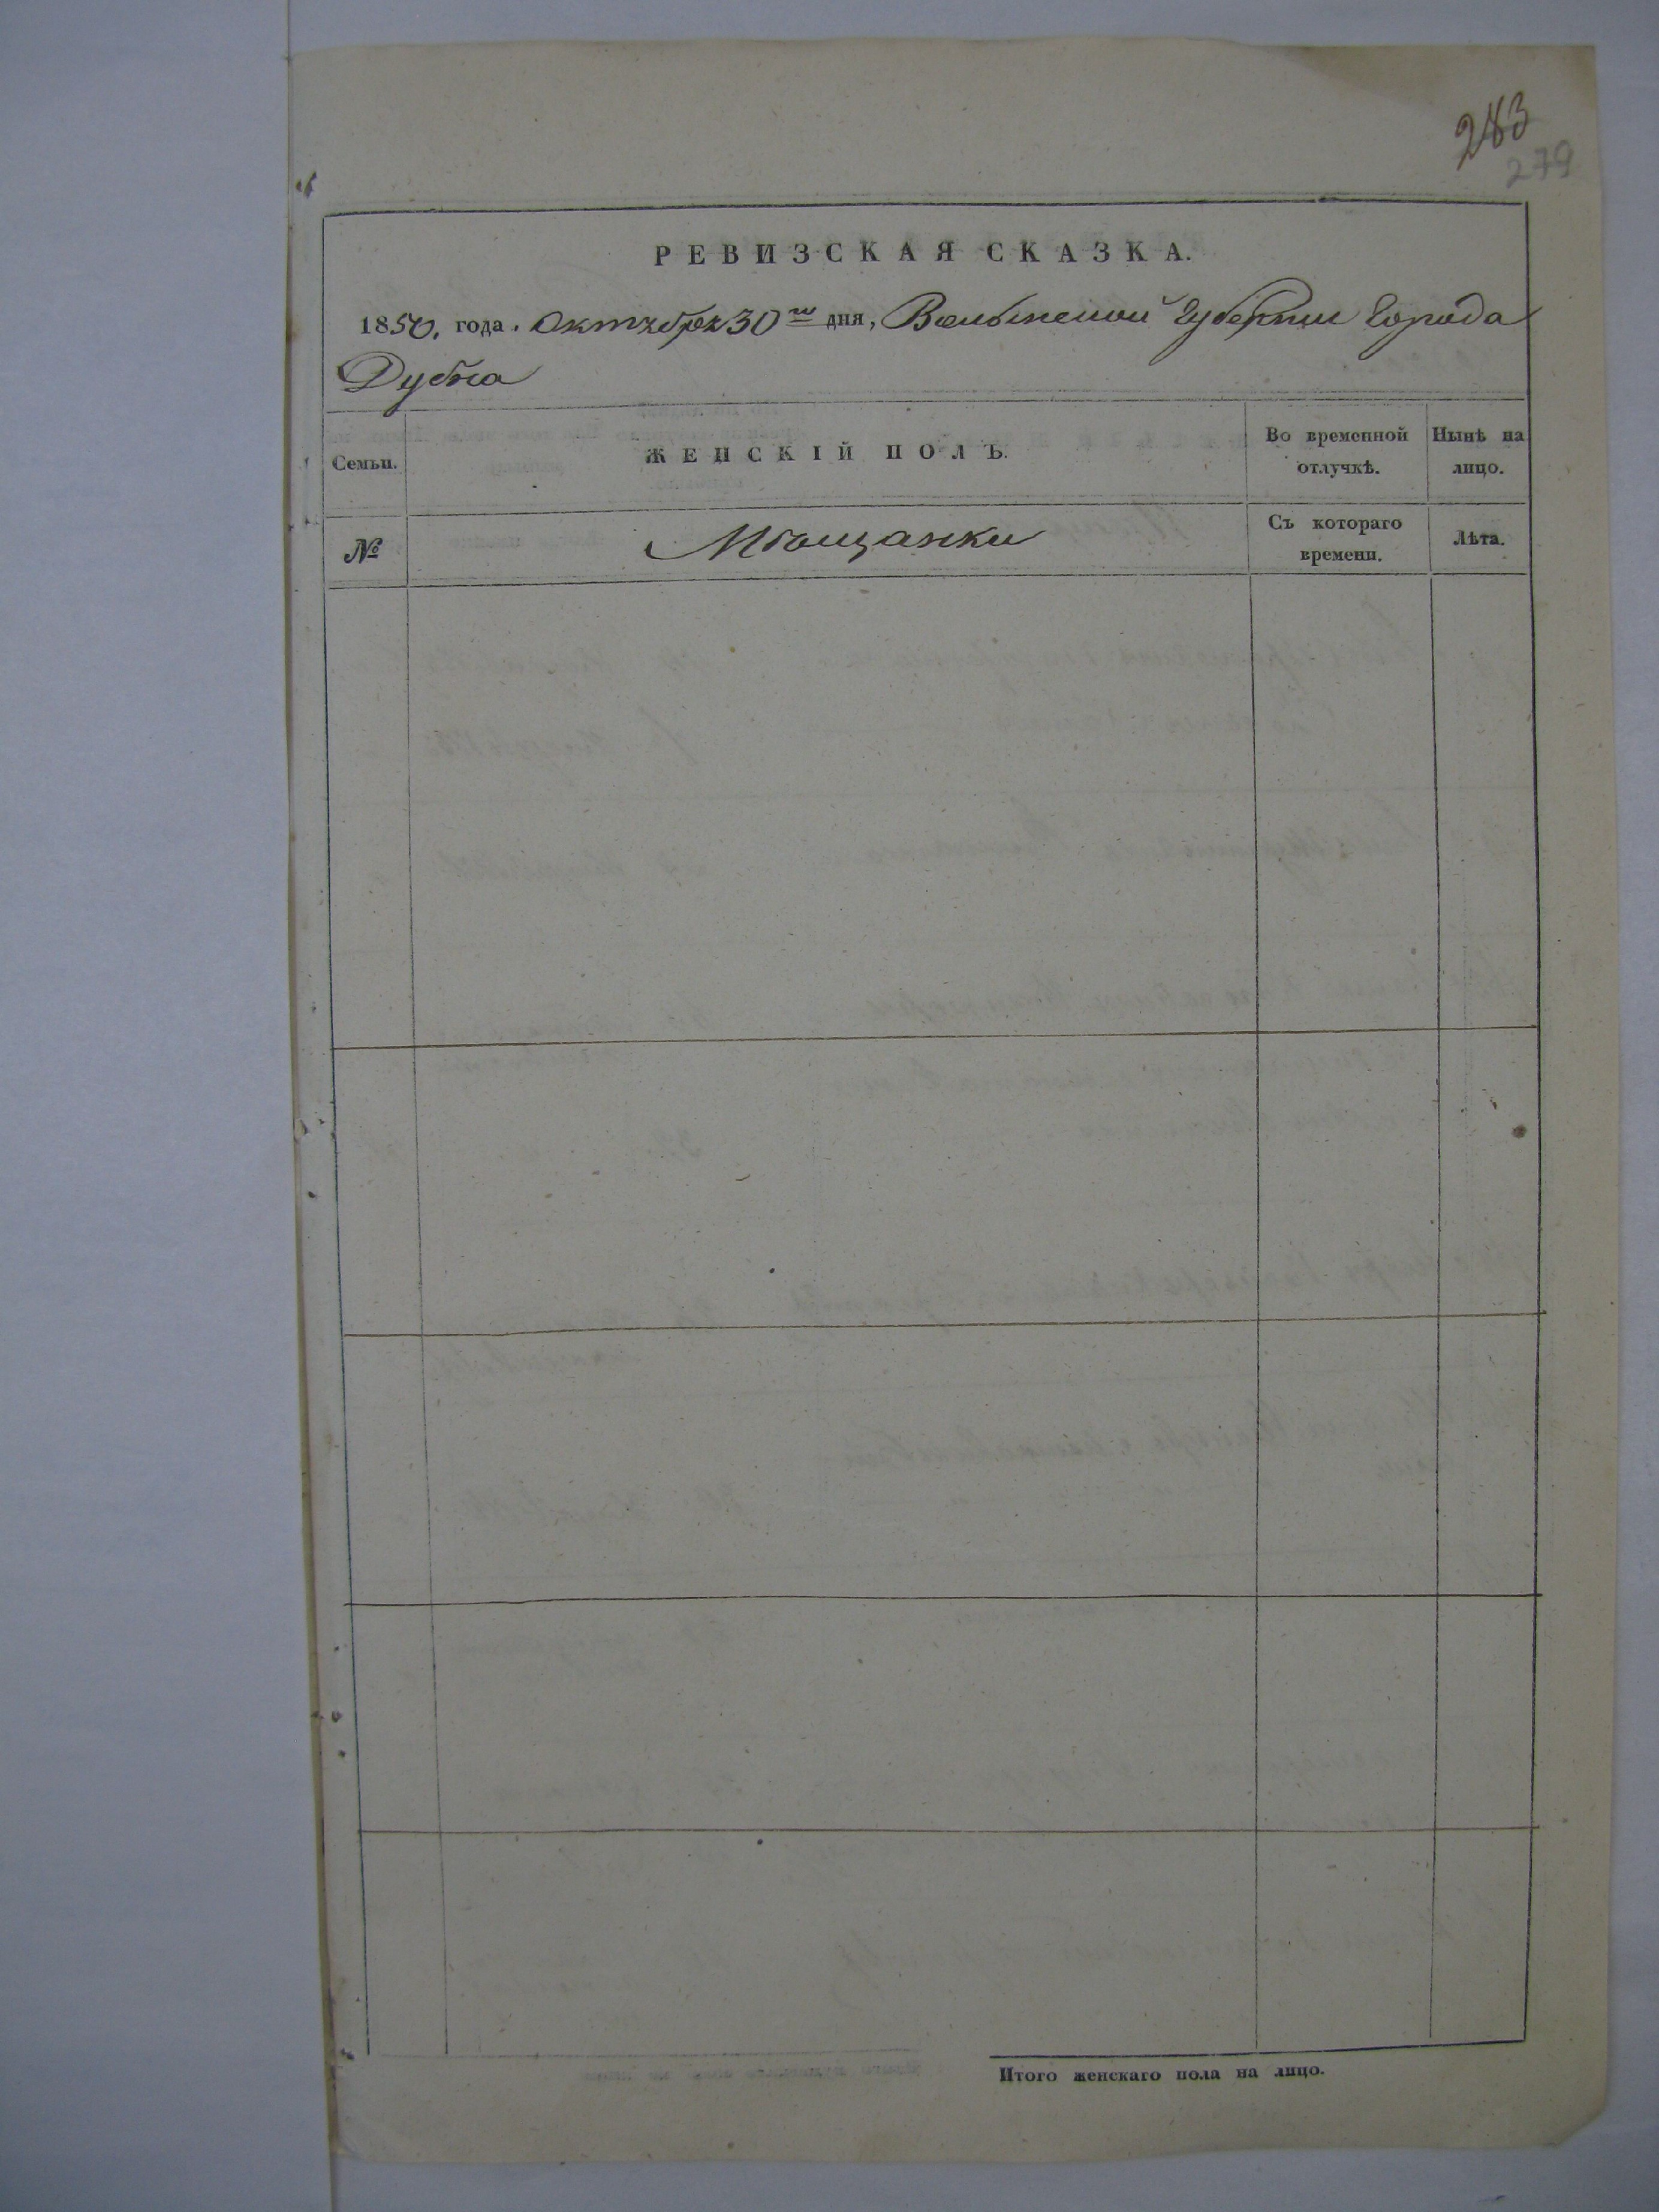 283
279
РЕВИЗСКАЯ СКАЗКА.
1850. года. Октября 30го дня, Волынской Губернии Города
Дубна
Семьи.
ЖЕНСКІЙ ПОЛЪ.
Во временной
отлучкѣ.
Нынѣ на
лицо.
№
Мѣщанки
Съ котораго
времени.
Лѣта.
Итого женскаго пола на лицо.